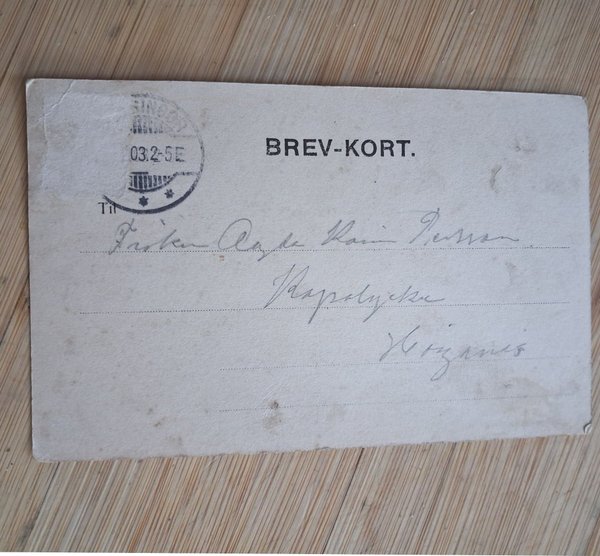 SINGØ
03.2-5E
BREV-KORT.
Til
Fröken Agda Karin Persson
Kapolycke
Höganäs